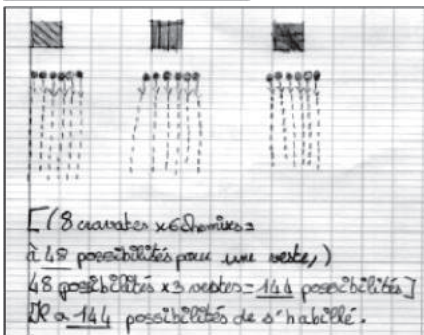 [(8 cravates x 6 chemises =
à 48 possibilités pour une veste,)
48 possibilités x 3 vestes = 144 possibilités]
Il a 144 possibilités de s'habillé.